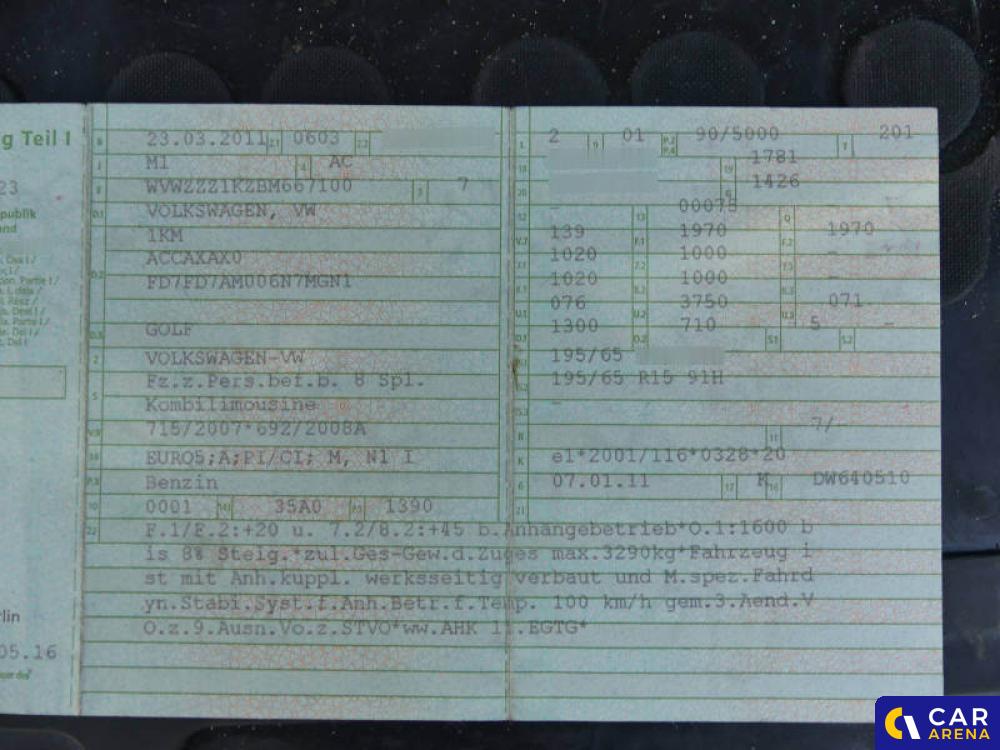 g Teil I
23
publik
and
rlin
05.16
B 23.03.2011 2.1 0603 2.2
J M1 4 AC
E WVWZZZ1KZBM667100 3 7
D.1 VOLKSWAGEN, VW
1KM
D.2 ACCAXAX0
FD7FD7AM006N7MGN1
D.3 GOLF
2 VOLKSWAGEN-VW
5 Fz.z.Pers.bef.b. 8 Spl.
Kombilimousine
V.9 715/2007*692/2008A
14 EURO5;A;PI/CI; M, N1 I
P.3 Benzin
10 0001 14.1 35A0 P.1 1390
L 2 9 01 P.2 P.4 90/5000 T 201
18 19 1781
20 G 1426
12 - 13 00075 Q -
V.7 139 F.1 1970 F.2 1970
7.1 1020 7.2 1000 7.3 -
8.1 1020 8.2 1000 8.3 -
U.1 076 U.2 3750 U.3 071
O.1 1300 O.2 710 S.1 5 S.2 -
15.1 195/65
15.2 195/65 R15 91H
15.3 -
R 11 7/-
K e1*2001/116*0328*20
6 07.01.11 17 K 16 DW640510
21
22 F.1/F.2:+20 u. 7.2/8.2:+45 b.Anhängebetrieb*O.1:1600 b
is 8% Steig.*zul.Ges-Gew.d.Zuges max.3290kg*Fahrzeug i
st mit Anh.kuppl. werksseitig verbaut und M.spez.Fahrd
yn.Stabi.Syst.f.Anh.Betr.f.Temp. 100 km/h gem.3.Aend.V
O.z.9.Ausn.Vo.z.STVO*ww.AHK lt.EGTG*
CAR
ARENA